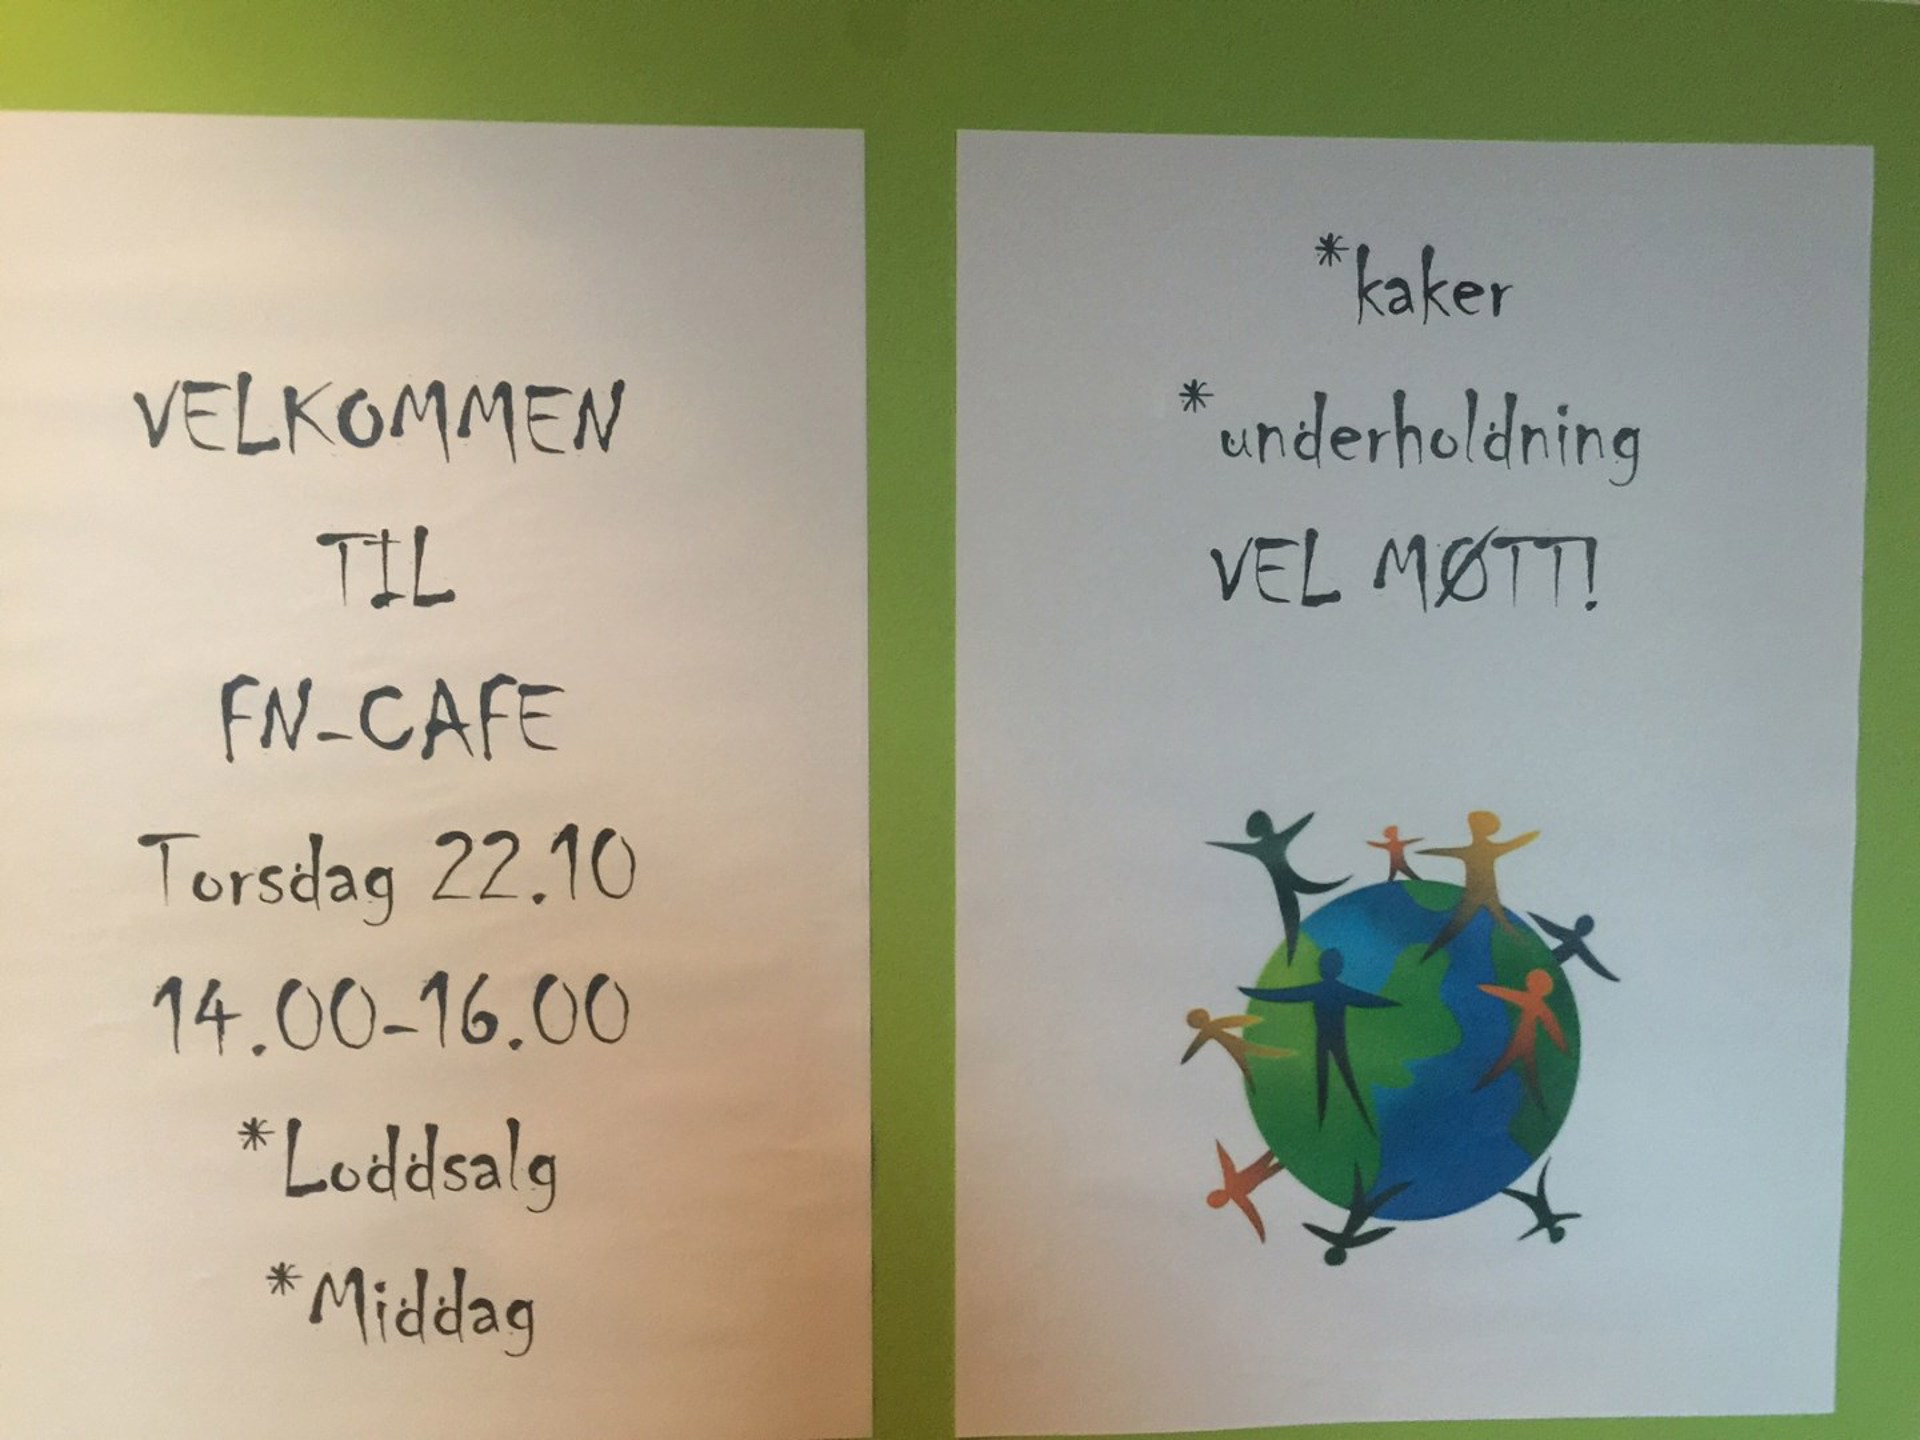 VELKOMMEN
TIL
FN-CAFE
Torsdag 22.10
14.00-16.00
*Loddsalg
*Middag
*kaker
*underholdning
VEL MØTT!